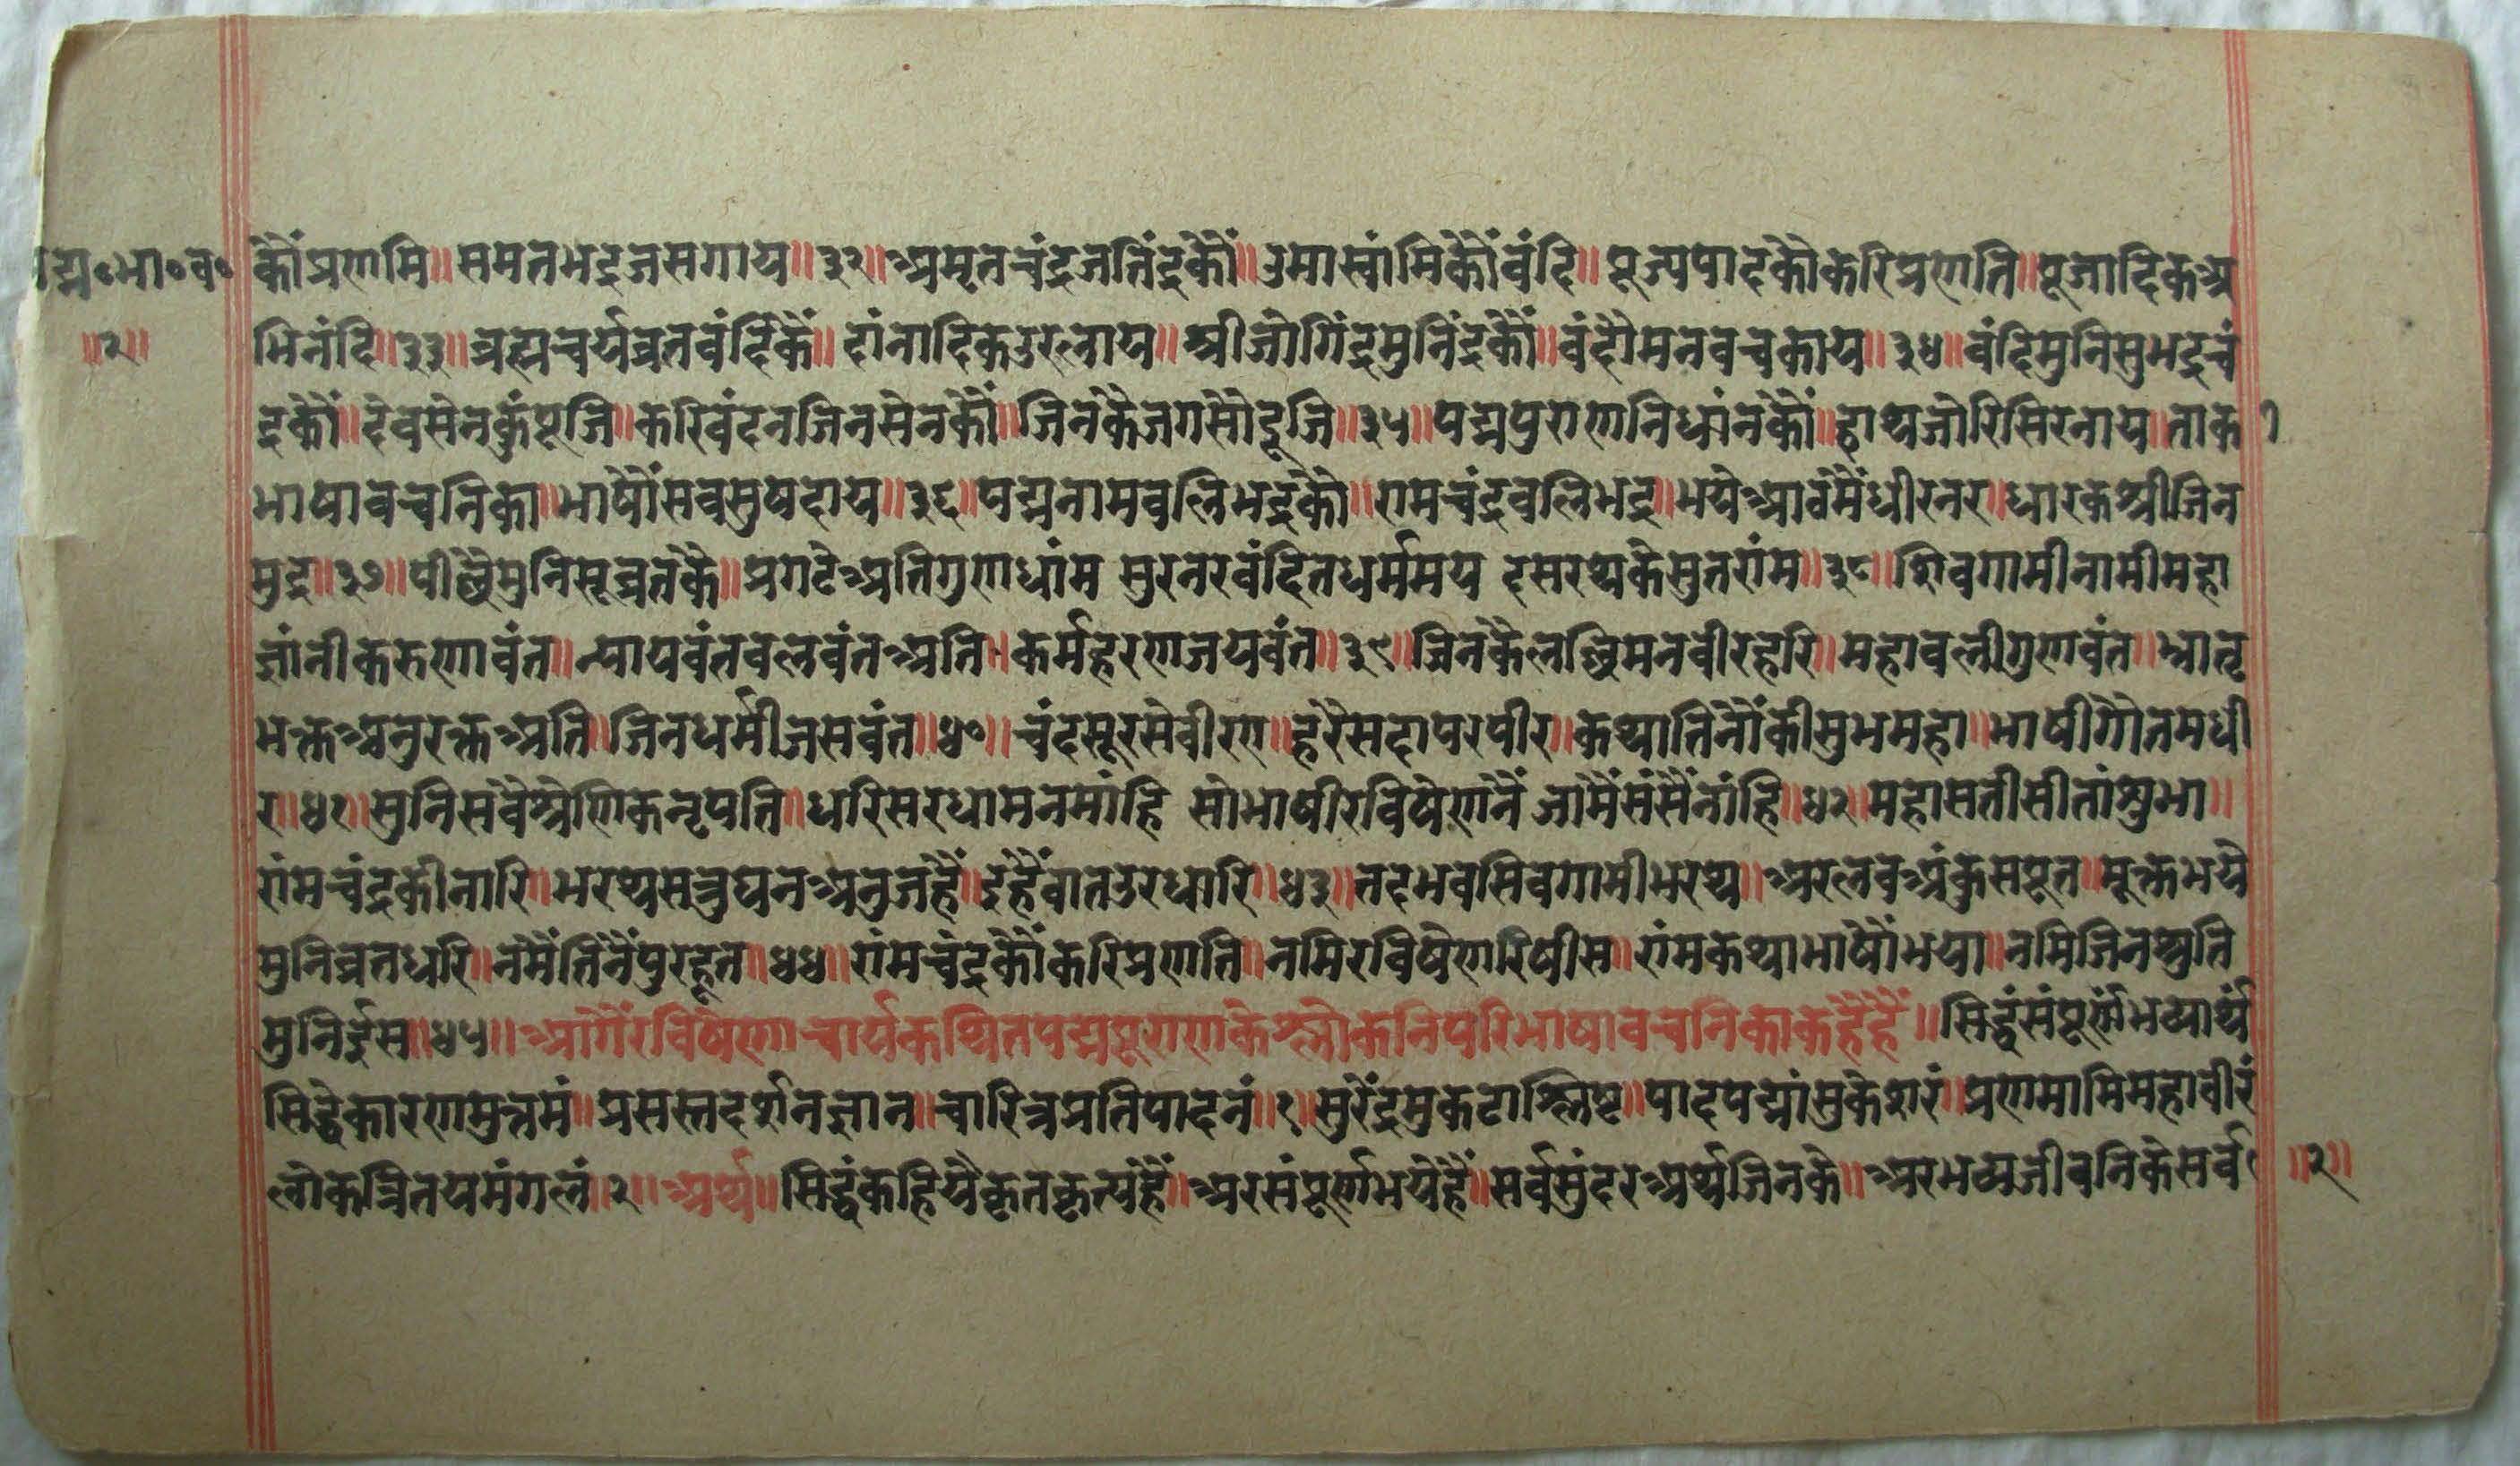 पद्म॰भा॰व॰
॥२॥
कौंप्रणमि॥समतभद्रजसगाय॥३२॥अमृतचंद्रजतिंद्रकौं॥उमास्वांमिकौंवंदि॥पूज्यपादकौकरिप्रणति॥पूजादिकअ
भिनंदि॥३३॥ब्रह्मचर्यव्रतवंदिकैं॥दांनादिकउरलाय॥श्रीजोगिंद्रमुनिंद्रकौं॥वंदौमनवचकाय॥३४॥वंदिमुनिसुभद्रचं
द्रकौं॥देवसेनकुंपूजि॥करिवंदनजिनसेनकौं॥जिनकैजगसौदूजि॥३५॥पद्मपुराणनिधांनकौं॥हाथजोरिसिरनाय॥ताकी
भाषावचनिका॥भाषौंसबसुषदाय॥३६॥पद्मनामबलिभद्रकौ॥रामचंद्रबलिभद्र॥भयेआठवैंधीरनर॥धारकश्रीजिन
मुद्र॥३७॥पीछैमुनिसूव्रतकै॥प्रगटेअतिगुणधांम सुरनरवंदितधर्ममय दसरथकेसुतरांम॥३८॥शिवगामीनामीमहा
ज्ञांनीकरुणावंत॥न्यायवंतबलवंतअति॥कर्महरणजयवंत॥३९॥जिनकैलछिमनवीरहरि॥महाबलीगुणवंत॥भ्रातृ
भक्तअनुरक्तअति॥जिनधर्मीजसवंत॥४०॥चंदसूरसेवीरण॥हरैसदापरपीर॥कथातिनौंकीसुभमहा॥भाषीगौतमधी
र॥४१॥सुनिसवैश्रेणिकनृपति॥धरिसरधामनमांहि सोभाषीरविषेणनैं जामैंसंसैनांहि॥४२॥महासतीसीतांशुभा॥
रांमचंद्रकीनारि॥भरथसत्रुघनअनुजहैं॥इंहैंवातउरधारि॥४३॥तदभवसिवगामीभरथ॥अरलवअंकुसपूत॥मूक्तभये
मुनिव्रतधरि॥नमैंतिनैंपुरहूत॥४४॥रांमचंद्रकौंकरिप्रणति॥नमिरविषेणरिषीस॥रांमकथाभाषौंभया॥नमिजिनश्रुति
मुनिईस॥४५॥आगैंरविषेणाचार्यकथितपद्मपूराणकेश्लोकनिपरिभाषावचनिकाकहैहैं॥सिद्धंसंपूर्णभव्यार्थं
सिद्धेकारणमुत्तमं॥प्रसस्तदर्शनज्ञान॥चारित्रप्रतिपादनं॥१॥सुरेंद्रमुकटाश्लिष्ट॥पादपद्मांसुकेशरं॥प्रणमामिमहावीरं
लोकत्रितयमंगलं॥२॥अर्थ॥सिद्धंकहियैकृतकृत्यहैं॥अरसंपूर्णभयेहैं॥सर्वसुंदरअर्थजिनकै॥अरभव्यजीवनिकेसर्व
॥२॥